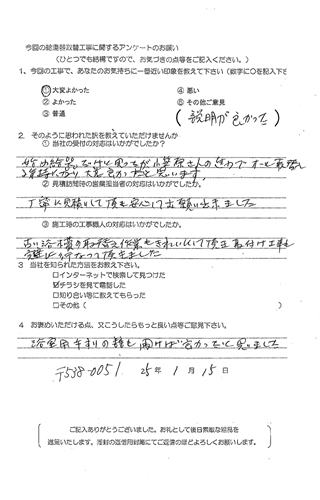 今回の給湯器取替工事に関するアンケートのお願い
(ひとつでも結構ですので、お気づきの点等をご記入ください。)
1、今回の工事で、あなたのお気持ちに一番近い印象を教えて下さい(数字に○を記入下さ
①大変よかった
④悪い
②よかった
⑤その他ご意見
③普通
(説明が良かった)
2、そのように思われた訳を教えていただけませんか
①当社の受付の対応はいかがでしたか?
大変良かったと思います
②見積訪問時の営業担当者の対応はいかがでしたか。
丁寧に見積りして頂き安心してお願い出来ました
③施工時の工事職人の対応はいかがでしたか。
古い浴槽の取替え作業もきれいにして頂き取付け工事も
頂きました
3 当社を知られた方法をお教え下さい。
□インターネットで検索して見つけた
☑チラシを見て電話した
□知り合い等に教えてもらった
□その他( )
4 お褒めいただける点、又こうしたらもっと良い点等ご意見下さい。
浴室用手すりの種も聞けば良かったと思いました
〒538-0051 25年1月15日
ご記入ありがとうございました。お礼として後日素敵な粗品を
進呈いたします。添付の返信用封筒にてご返信のほどよろしくお願いします。